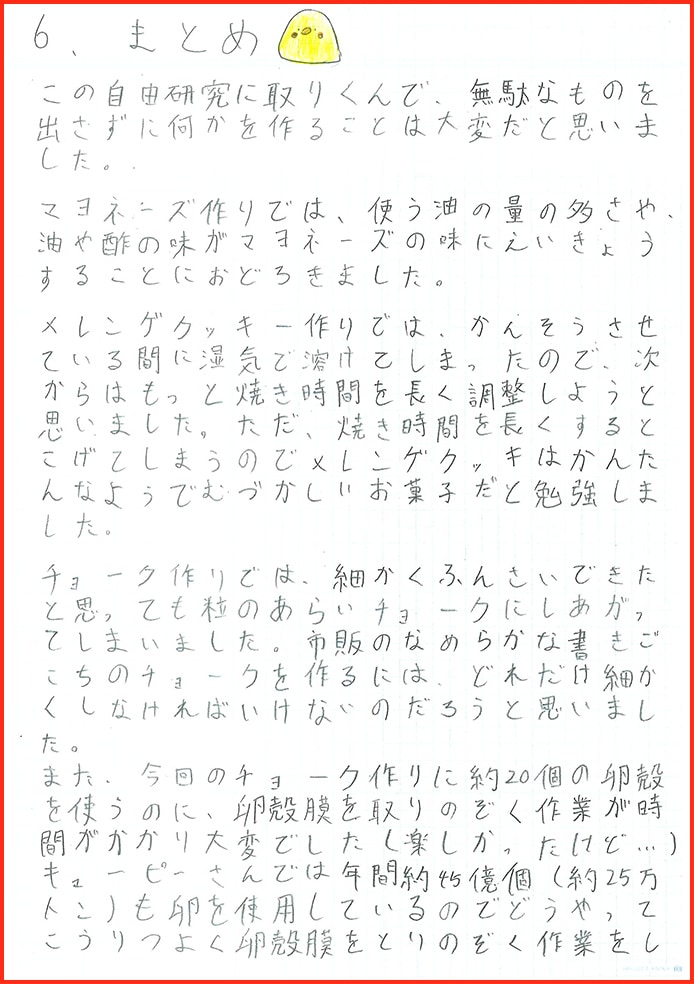 6、まとめ
この自由研究に取りくんで、無駄なものを
出さずに何かを作ることは大変だと思いま
した。
マヨネーズ作りでは、使う油の量の多さや、
油や酢の味がマヨネーズの味にえいきょう
することにおどろきました。
メレンゲクッキー作りでは、かんそうさせ
ている間に湿気で溶けてしまったので、次
からはもっと焼き時間を長く調整しようと
思いました。ただ、焼き時間を長くすると
こげてしまうのでメレンゲクッキはかんた
んなようでむづかしいお菓子だと勉強しま
した。
チョーク作りでは、細かくふんさいできた
と思っても粒のあらいチョークにしあがっ
てしまいました。市販のなめらかな書きご
こちのチョークを作るには、どれだけ細か
くしなければいけないのだろうと思いまし
た。
また、今回のチョーク作りに約20個の卵殻
を使うのに、卵殻膜を取りのぞく作業が時
間がかかり大変でした(楽しかったけど…)
キューピーさんでは年間約45億個(約25万
トン)も卵を使用しているのでどうやって
こうりつよく卵殻膜をとりのぞく作業をし